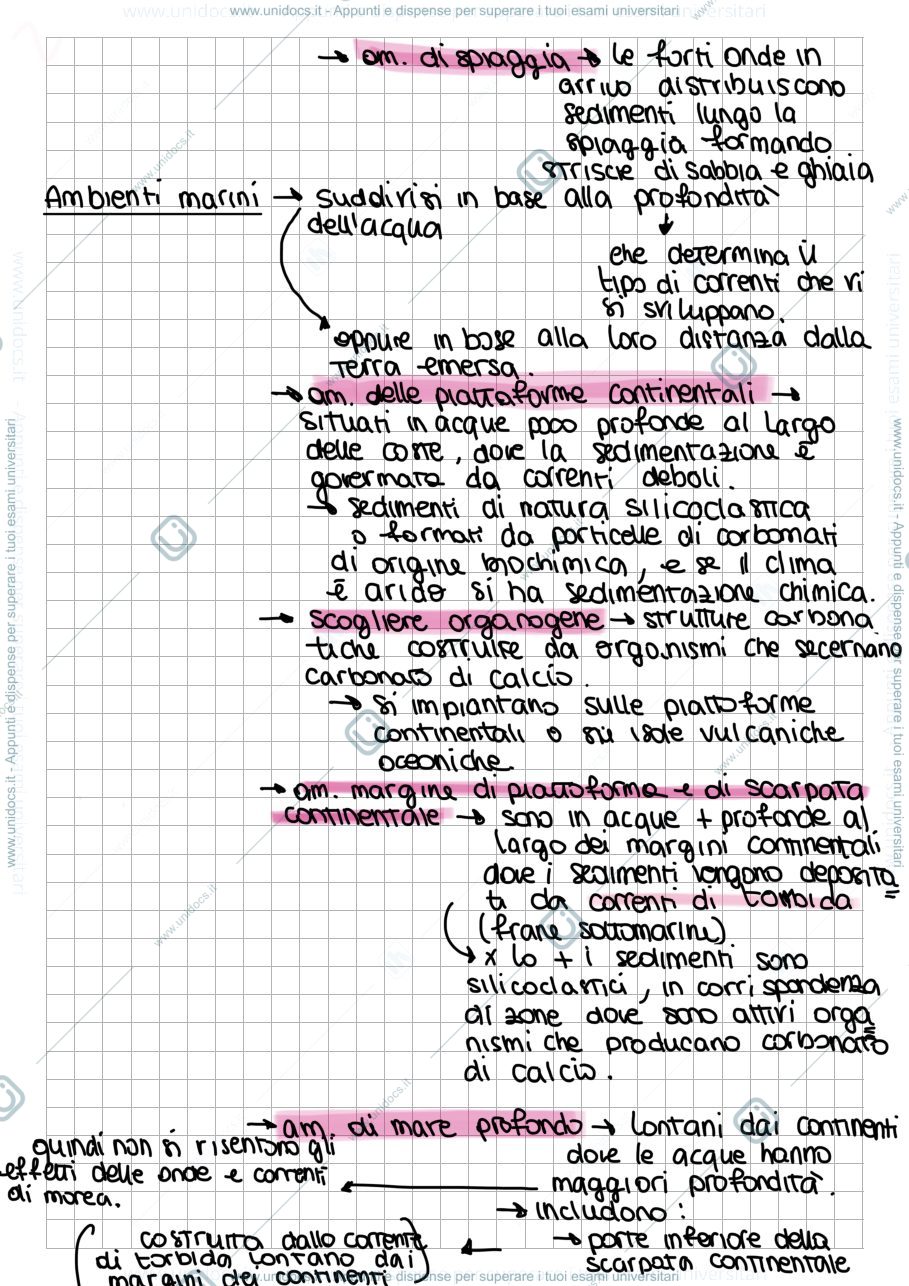 www.unidocs.it - Appunti e dispense per superare i tuoi esami universitari
→ am. di spiaggia → le forti onde in
arrivo distribuiscono
sedimenti lungo la
spiaggia formando
striscie di sabbia e ghiaia
Ambienti marini → suddivisi in base alla profondità
dell'acqua
che determina il
tipo di correnti che vi
si sviluppano.
oppure in base alla loro distanza dalla
terra emersa.
→ am. delle piattaforme continentali →
situati in acque poco profonde al largo
delle coste, dove la sedimentazione è
governata da correnti deboli.
→ sedimenti di natura silicoclastica
o formati da particelle di carbonati
di origine biochimica, e se il clima
è arido si ha sedimentazione chimica.
→ scogliere organogene → strutture carbona
tiche costruite da organismi che secernano
carbonato di calcio.
→ si impiantano sulle piattoforme
continentali o su isole vulcaniche
oceaniche.
→ am. margine di piattaforma e di scarpata
continentale → sono in acque + profonde al
largo dei margini continentali
dove i sedimenti vengono deposita
ti da correnti di torbida
(frane sottomarine)
→ x lo + i sedimenti sono
silicoclastici, in corrispondenza
di zone dove sono attivi orga
nismi che producano carbonato
di calcio.
→ am. di mare profondo → lontani dai continenti
dove le acque hanno
maggiori profondità.
quindi non si risentono gli
effetti delle onde e correnti
di marea.
→ includono:
→ parte inferiore della
scarpata continentale
(costruita dalle correnti
di torbida lontano dai
margini dei continenti)
www.unidocs.it - Appunti e dispense per superare i tuoi esami universitari